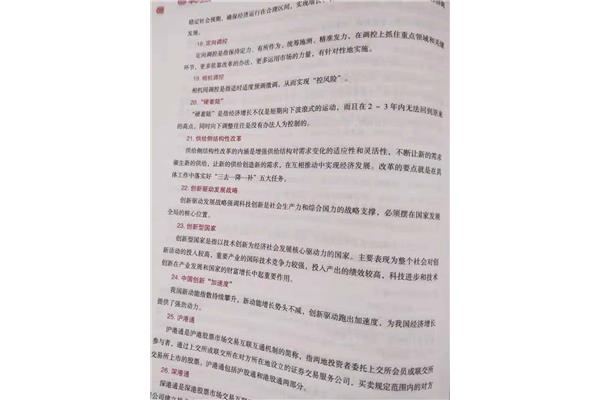 稳定社会预期，确保经济运行在合理区间，实现增长、
发展。
18. 定向调控
定向调控是指保持定力、有所作为、统筹施测、精准发力，在调控上抓住重点领域和关键
环节，更多依靠改革的办法，更多运用市场的力量，有针对性地实施。
19. 相机调控
相机间调控是指适时适度预调微调，从而实现“控风险”。
20. “硬着陆”
“硬着陆”是指经济增长不仅是短期向下波浪式的运动，而且在 2 - 3 年内无法回到原来
的高点，同时向下调整往往是没有办法人为控制的。
21. 供给侧结构性改革
供给侧结构性改革的内涵是增强供给结构对需求变化的适应性和灵活性，不断让新的需求
催生新的供给，让新的供给创造新的需求，在互相推动中实现经济发展。改革的要点就是在具
体工作中落实好“三去一降一补”五大任务。
22. 创新驱动发展战略
创新驱动发展战略强调科技创新是社会生产力和综合国力的战略支撑，必须摆在国家发展
全局的核心位置。
23. 创新型国家
创新型国家是指以技术创新为经济社会发展核心驱动力的国家。主要表现为整个社会对创
新活动的投入较高，重要产业的国际技术竞争力较强，投入产出的绩效较高，科技进步和技术
创新在产业发展和国家的财富增长中起重要作用。
24. 中国创新“加速度”
我国新动能指数持续攀升，新动能增长势头不减，创新驱动跑出加速度，为我国经济增长
提供了强劲动力。
25. 沪港通
沪港通是沪港股票市场交易互联互通机制的简称，指两地投资者委托上交所会员或联交所
参与者，通过上交所或联交所在对方所在地设立的证券交易服务公司，买卖规定范围内的对方
交易所上市的股票。沪港通包括沪股通和港股通两部分。
26. 深港通
深港通是深港股票市场交易互联